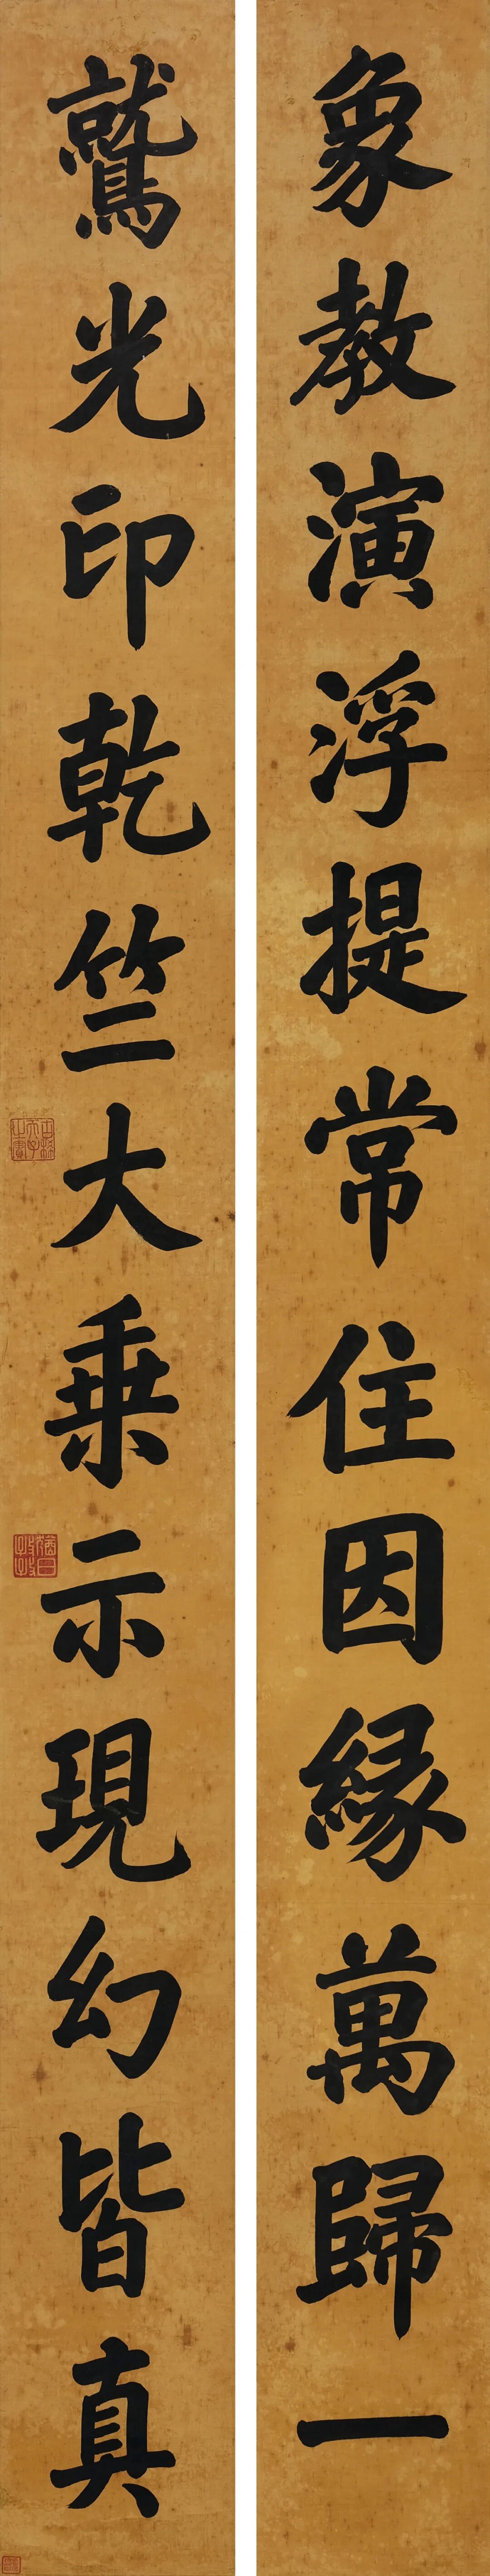 象教演浮提常住因緣萬歸一
鷲光印乾竺大乗示現幻皆真